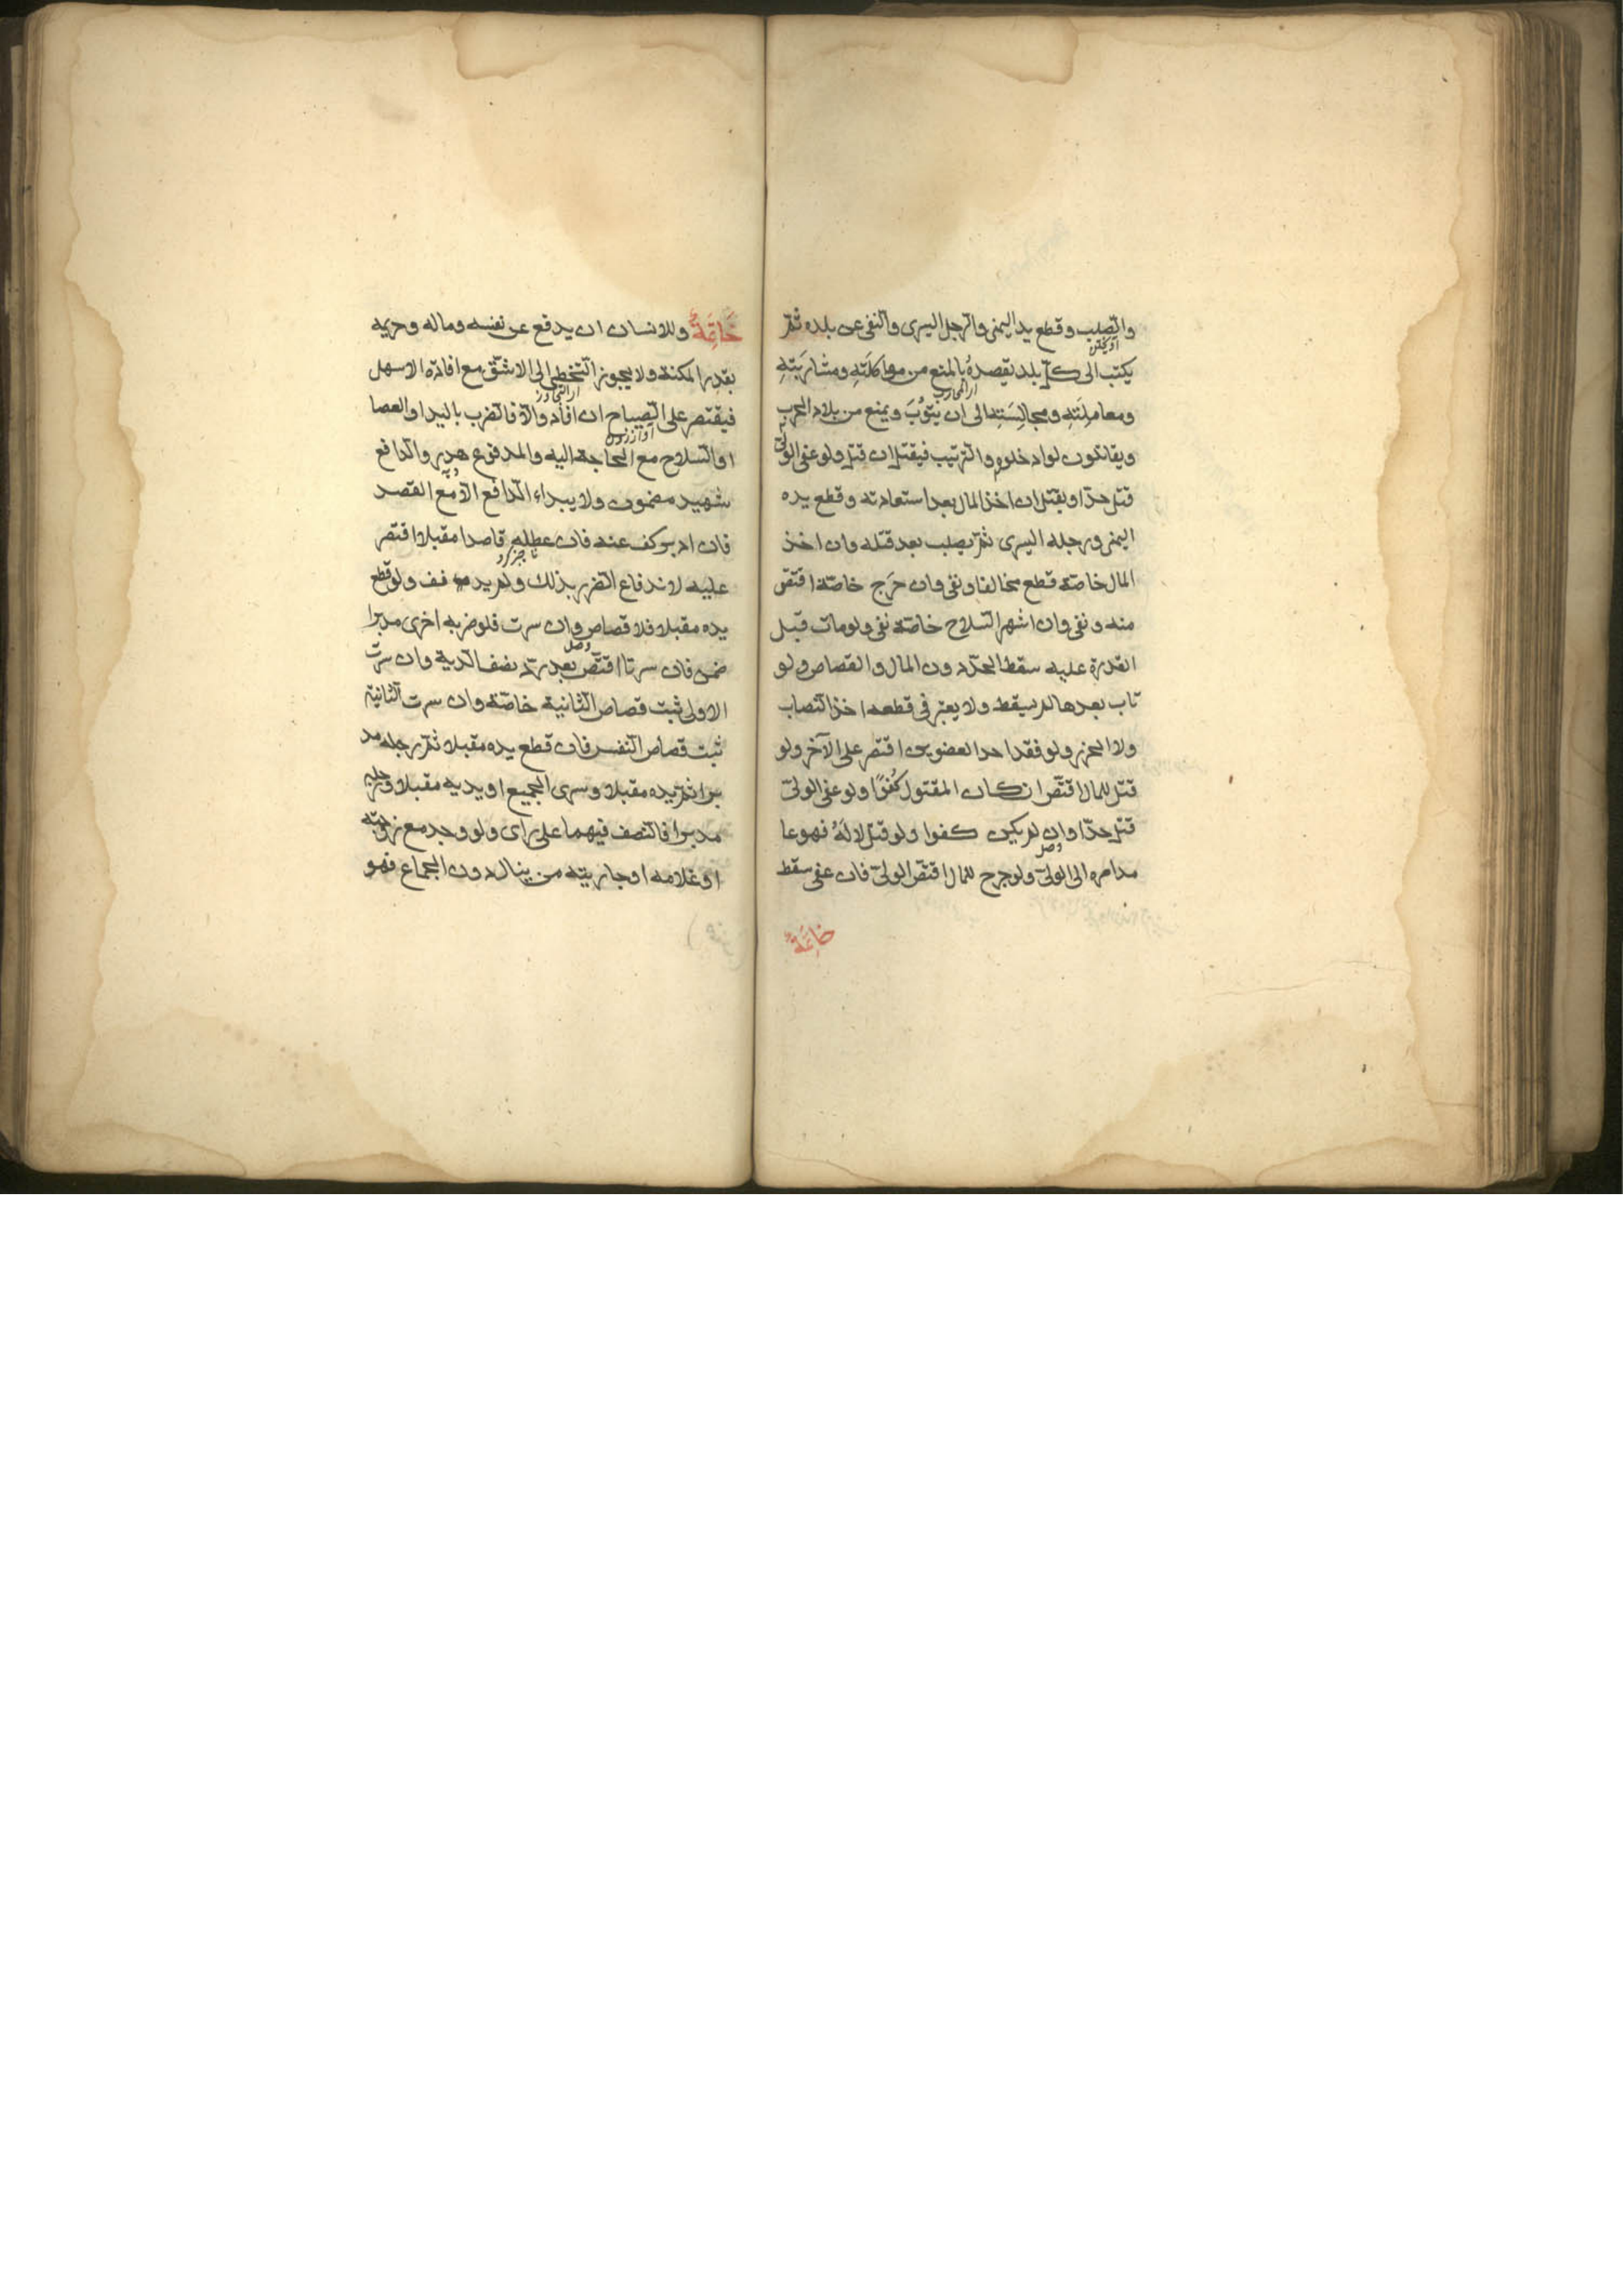 والصلب وقطع يد اليمنى والرجل اليسرى والنفى عن بلده ثم
يكتب الى كل بلد يقصده بالمنع من مواكلته ومشاربته
ومعاملته ومجالسته الى ان يتوب ويمنع من بلاد الحرب
ويقاتلون لو ادخلوهم والترتيب فيقتل ان قتل ولو عفى الولى
قتل حدا ويقتل ان اخذ المال بعد استعادته وقطع يده
اليمنى ورجله اليسرى ثم يصلب بعد قتله وان اخذ
المال خاصة قطع مخالفا ونفى وان جرح خاصة اقتص
منه ونفى وان اشهر السلاح خاصة نفى ولو مات قبل
القدرة عليه سقط الحد دون المال والقصاص ولو
تاب بعدها لم يسقط ولا يعتبر فى قطعه اخذ النصاب
ولا الحرز ولو فقد احد العضوين اقتصر على الآخر ولو
قتل للمال اقتص ان كان المقتول كفوا ولو عفى الولى
قتل حدا وان لم يكن كفوا ولو قتل لا له فهو عا
مد امره الى الولى ولو جرح للمال اقتص الولى فان عفى سقط
خاتمة
خاتمة وللانسان ان يدفع عن نفسه وماله وحريمه
بقدر المكنة ولا يجوز التخطى الى الاشق مع افادة الاسهل
فيقتصر على الصياح ان افاد والا فالضرب باليد او العصا
او السلاح مع الحاجة اليه والمدفوع هدر والدافع
شهيد مضمون ولا يبداء الدافع الا مع القصد
فان ادبر كف عنه فان عطله قاصدا مقبلا اقتصر
عليه لاندفاع الضرر بذلك ولم يدفف ولو قطع
يده مقبلا فلا قصاص وان سرت فلو ضربه اخرى مدبرا
ضمن فان سرتا اقتص بعد رد نصف الدية وان سرت
الاولى ثبت قصاص الثانية خاصة وان سرت الثانية
ثبت قصاص النفس فان قطع يده مقبلا ثم رجله مد
برا ثم يده مقبلا وسرى الجميع او يديه مقبلا ورجله
مدبرا فالنصف فيهما على راى ولو وجد مع زوجته
او غلامه او جاريته من ينال دون الجماع فهو